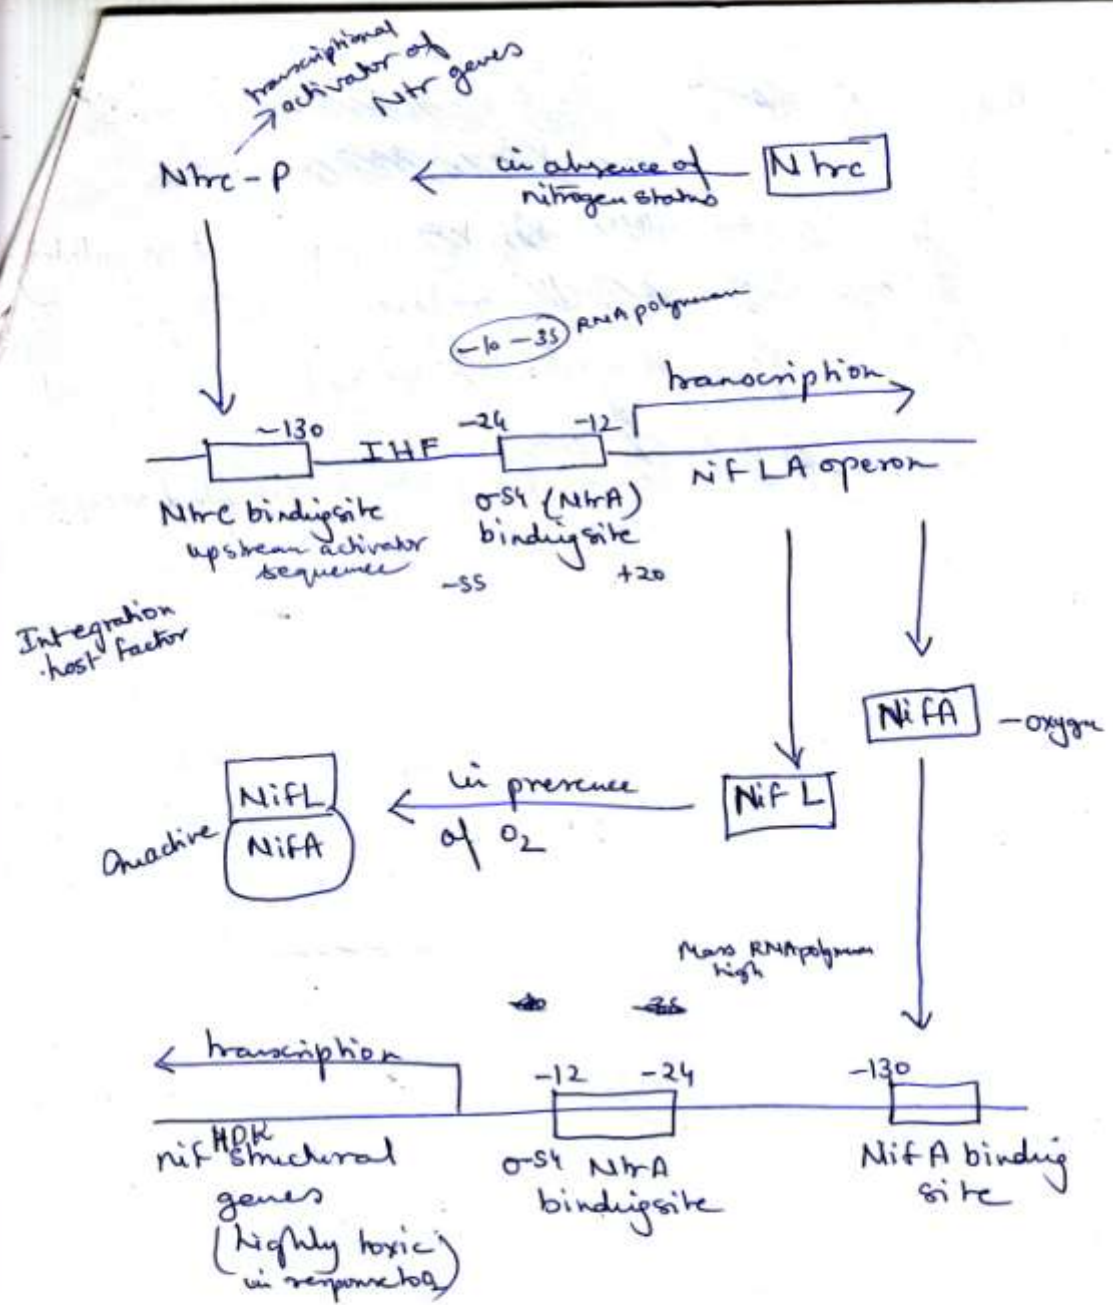 transcriptional
activator of
Ntr genes
Ntrc-P
in absence of
nitrogen status
Ntrc
-10 -35 RNA polymerase
transcription
~130
IHF
-24
-12
Nif LA operon
NtrC binding site
upstream activator
sequence
σ54 (NtrA)
binding site
-55
+20
Integration
host factor
NifA
-oxygen
NifL
NifA
in presence
of O2
Nif L
Mass RNA polymerase
high
transcription
-12
-24
-130
nif HDK structural
genes
(highly toxic
in response to O2)
σ54 NtrA
binding site
NifA binding
site